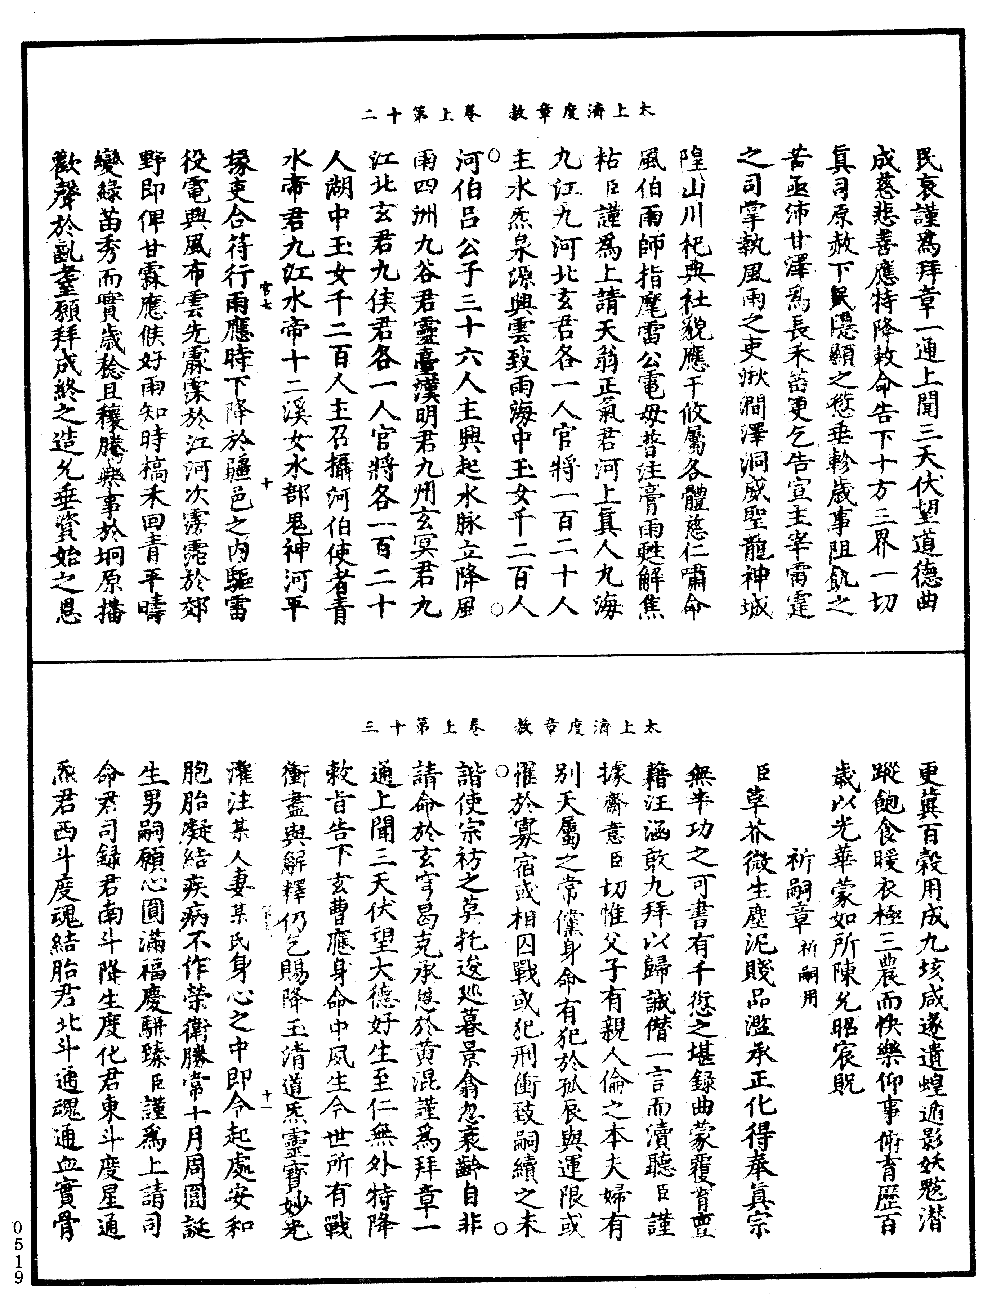 太上濟度章赦　卷上第十二
民哀謹為拜章一通上聞三天伏望道德曲
成慈悲善應特降敕命告下十方三界一切
真司原赦下民隱顯之愆垂軫歲事阻飢之
苦亟沛甘澤為長禾苗更乞告宣主宰雷霆
之司掌執風雨之吏湫澗澤洞威聖龍神城
隍山川祀典社貌應干攸屬各體慈仁嘯命
風伯雨師指麾雷公電母普注膏雨甦解焦
枯臣謹為上請天翁正氣君河上真人九海
九江九河北玄君各一人官將一百二十人
主水炁泉源興雲致雨海中玉女千二百人
河伯呂公子三十六人主興起水脉立降風
雨四洲九谷君靈臺漢明君九州玄冥君九
江北玄君九侯君各一人官將各一百二十
人湖中玉女千二百人主召攝河伯使者青
水帝君九江水帝十二溪女水部鬼神河平
掾吏合符行雨應時下降於疆邑之內驅雷
役電興風布雲先霢霂於江河次霶霈於郊
野即俾甘霖應候好雨知時槁禾回青平疇
變綠苗秀而實歲稔且穰騰樂事於坰原播
歡聲於畎畝願拜成終之造允垂資始之恩
官七　十
太上濟度章赦　卷上第十三
更冀百穀用成九垓咸遂遺蝗遁影妖魃潛
蹤飽食暖衣極三農而快樂仰事俯育歷百
歲以光華蒙如所陳允昭宸貺
祈嗣章祈嗣用
臣草芥微生塵泥賤品濫承正化得奉真宗
無半功之可書有千愆之堪錄曲蒙覆育亶
藉汪涵敢九拜以歸誠僭一言而瀆聽臣謹
據齋意臣切惟父子有親人倫之本夫婦有
別天屬之常儻身命有犯於孤辰與運限或
罹於寡宿或相囚戰或犯刑衝致嗣續之未
諧使宗祊之莫托逡巡暮景翕忽衰齡自非
請命於玄穹曷克承恩於黃混謹為拜章一
通上聞三天伏望大德好生至仁無外特降
敕旨告下玄曹應身命中夙生今世所有戰
衝盡與解釋仍乞賜降玉清道炁靈寶妙光
灌注某人妻某氏身心之中即令起處安和
胞胎凝結疾病不作榮衛勝常十月周圓誕
生男嗣願心圓滿福慶駢臻臣謹為上請司
命君司録君南斗降生度化君東斗度星通
炁君西斗度魂結胎君北斗通魂通血實骨
十一
0519